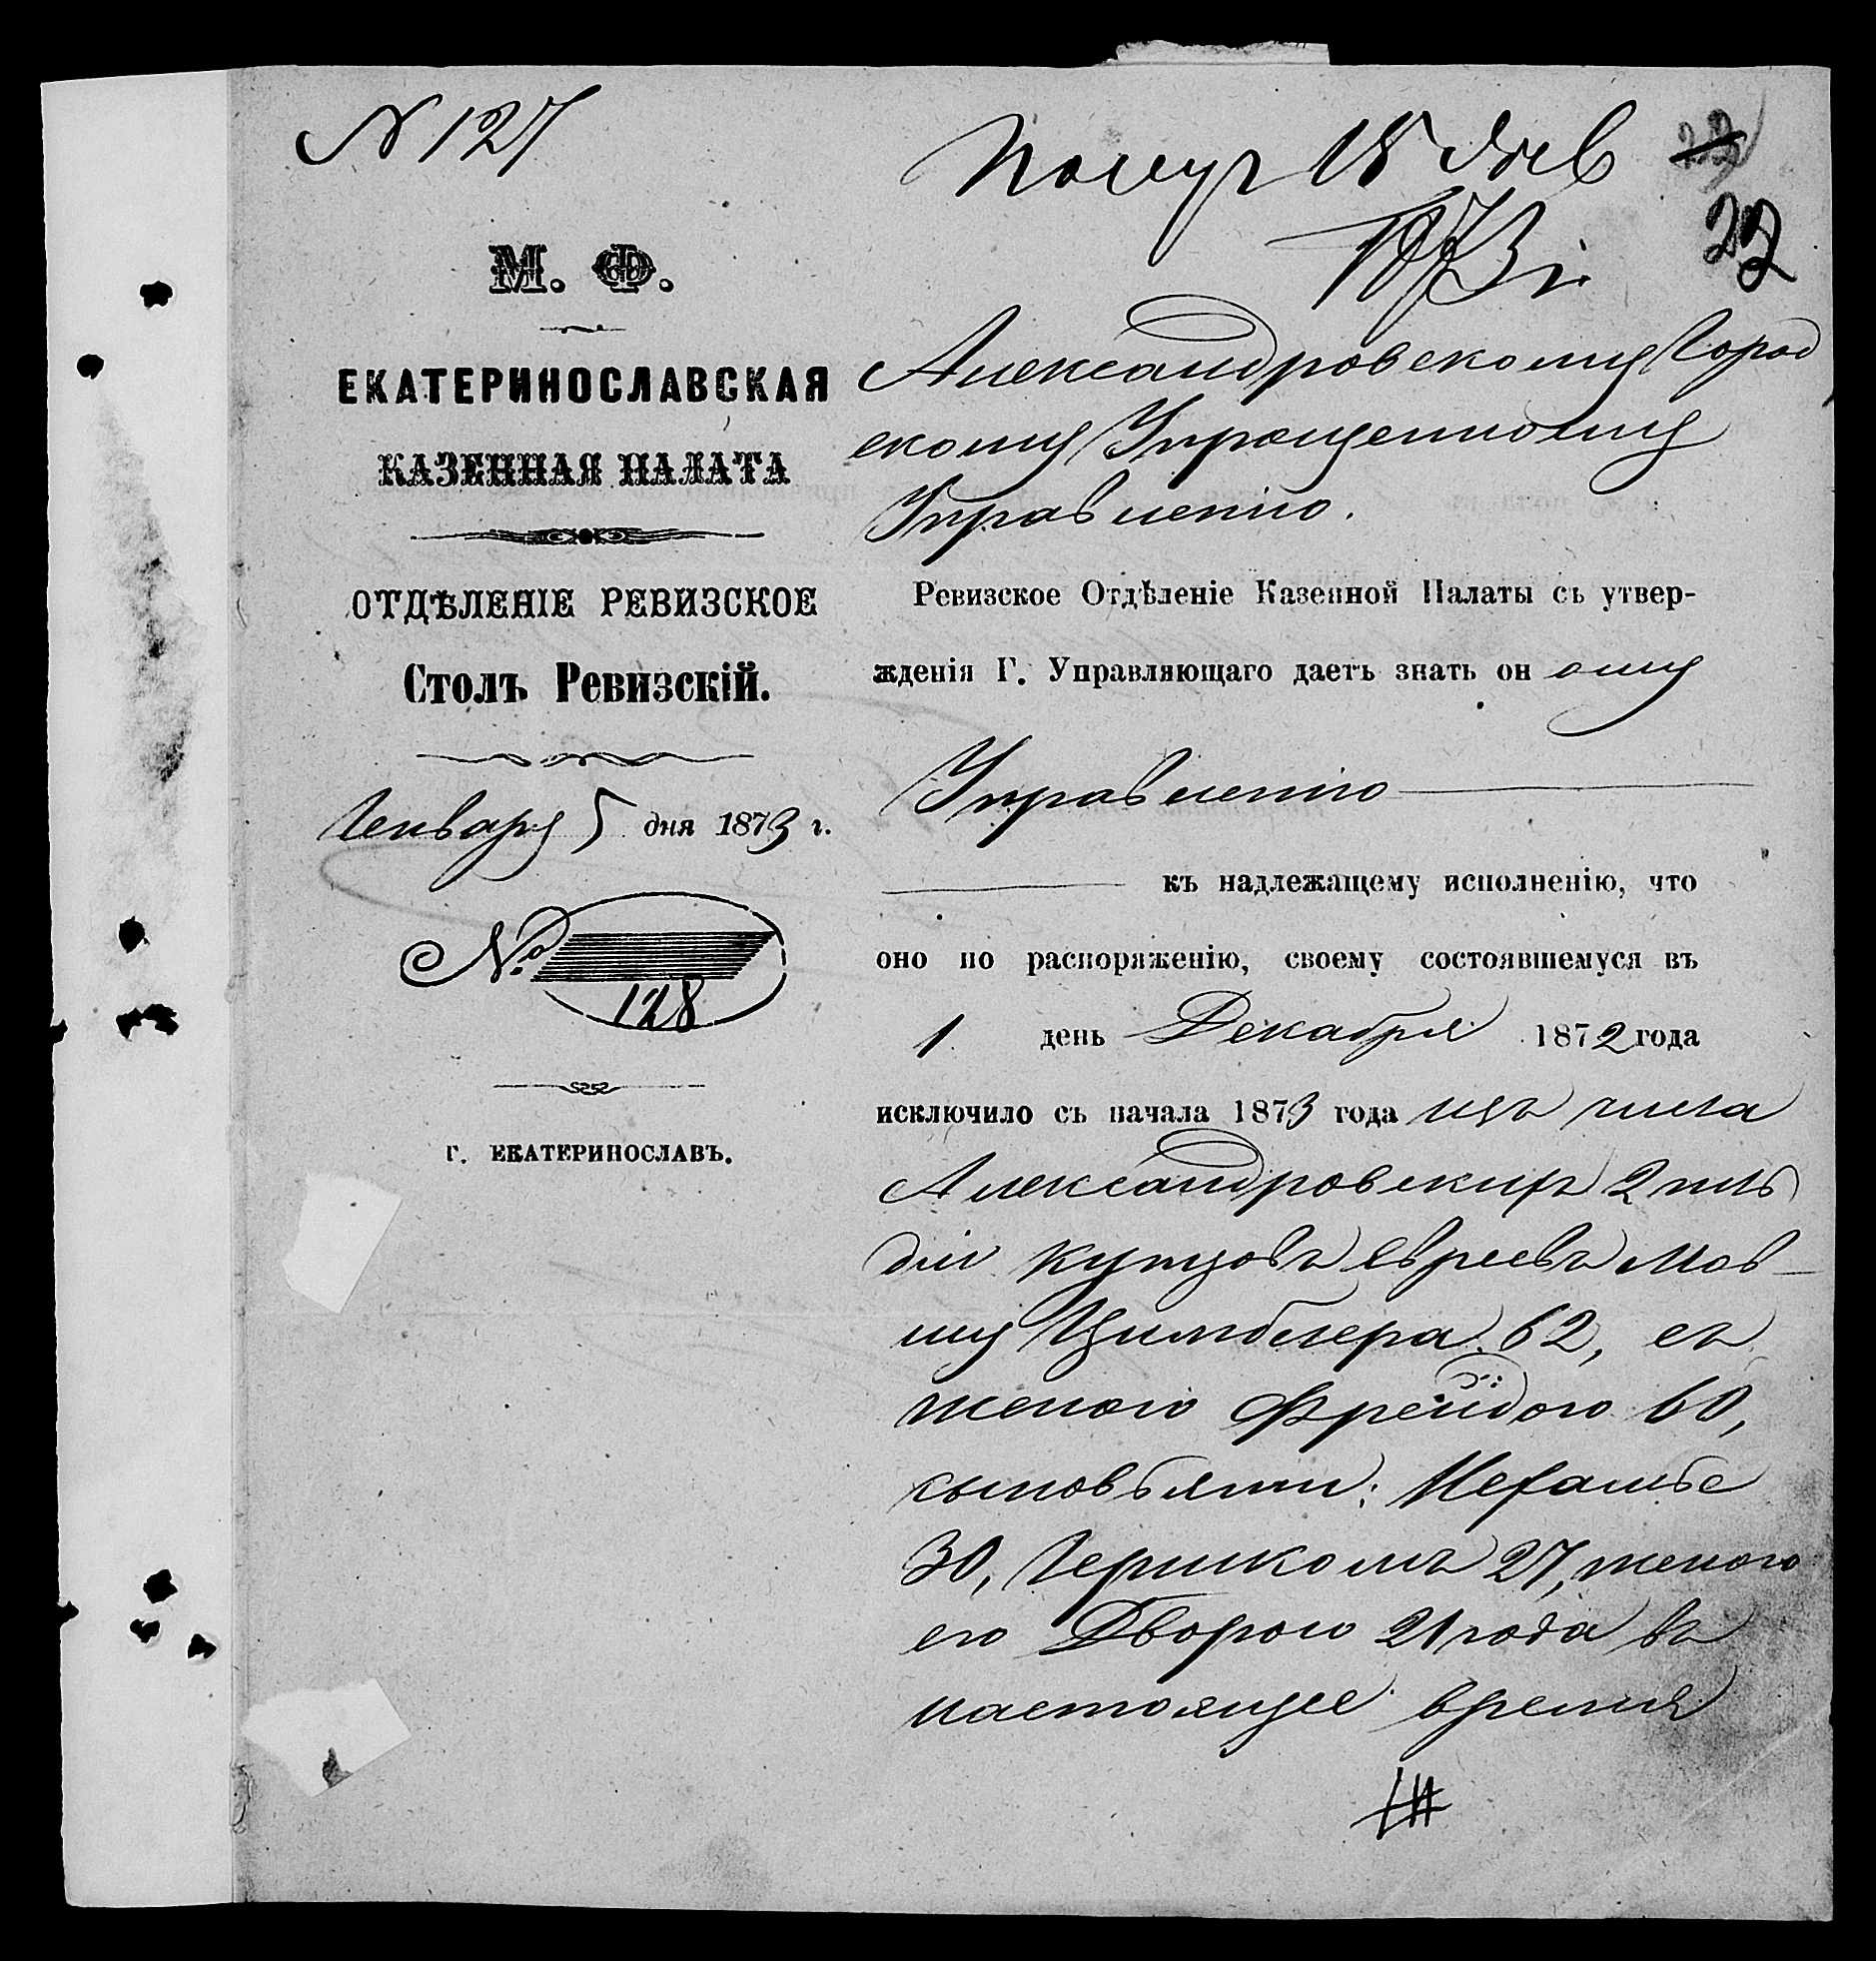 N 127
Получ 15 Янв
1873 г.
22
М. Ф.
ЕКАТЕРИНОСЛАВСКАЯ
КАЗЕННАЯ ПАЛАТА
ОТДѢЛЕНІЕ РЕВИЗСКОЕ
Столъ Ревизскій.
Генваря 5 дня 1873 г.
№
128
г. ЕКАТЕРИНОСЛАВЪ.
Александровскому Город
скому Упрощенному
Управленію.
Ревизское Отдѣленіе Казенной Палаты съ утвер-
жденія Г. Управляющаго даетъ знать он ому
Управленію
къ надлежащему исполненію, что
оно по распоряженію, своему состоявшемуся въ
1 день Декабря 1872 года
исключило съ начала 1873 года изъ числа
Александровскихъ 2 гиль
діи купцовъ евреевъ Мов-
шу Цимблера 62, съ
женою Фрейдою 60,
сыновьями:
30, Гершкомъ 27, женою
его Дворою 21 года въ
настоящее время